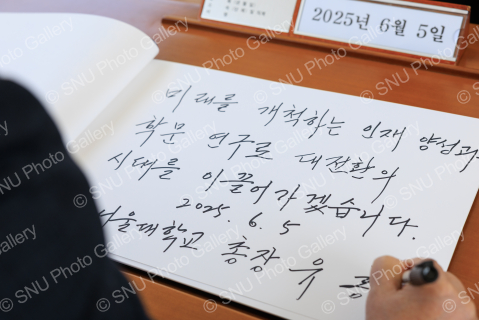 2025년 6월 5일
미래를 개척하는 인재 양성과
학문 연구로 대전환의
시대를 이끌어가겠습니다.
2025. 6. 5
서울대학교 총장 유 홍
© SNU Photo Gallery